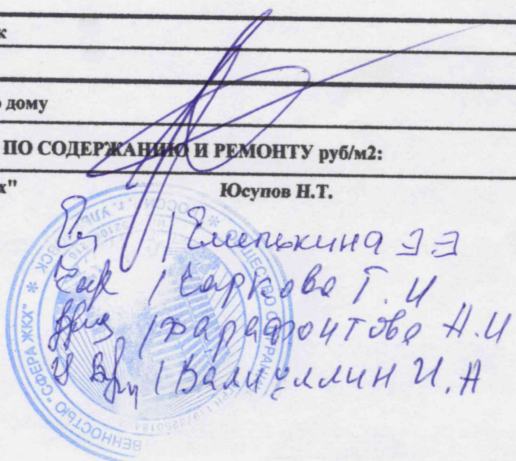 к
дому
ПО СОДЕРЖАНИЮ И РЕМОНТУ руб/м2:
"
Юсупов Н.Т.
/ Емелькина Э Э
/ Карпова Г. И
/ Фарафонтова Н.И
/ Валиуллин И.А
ОБЩЕСТВО С ОГРАНИ
ВЕННОСТЬЮ "СФЕРА ЖКХ"